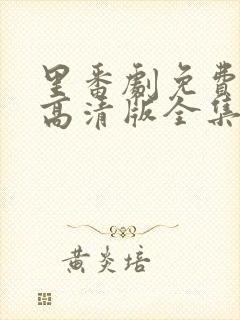 里番剧免費
高清版全集
黄炎培